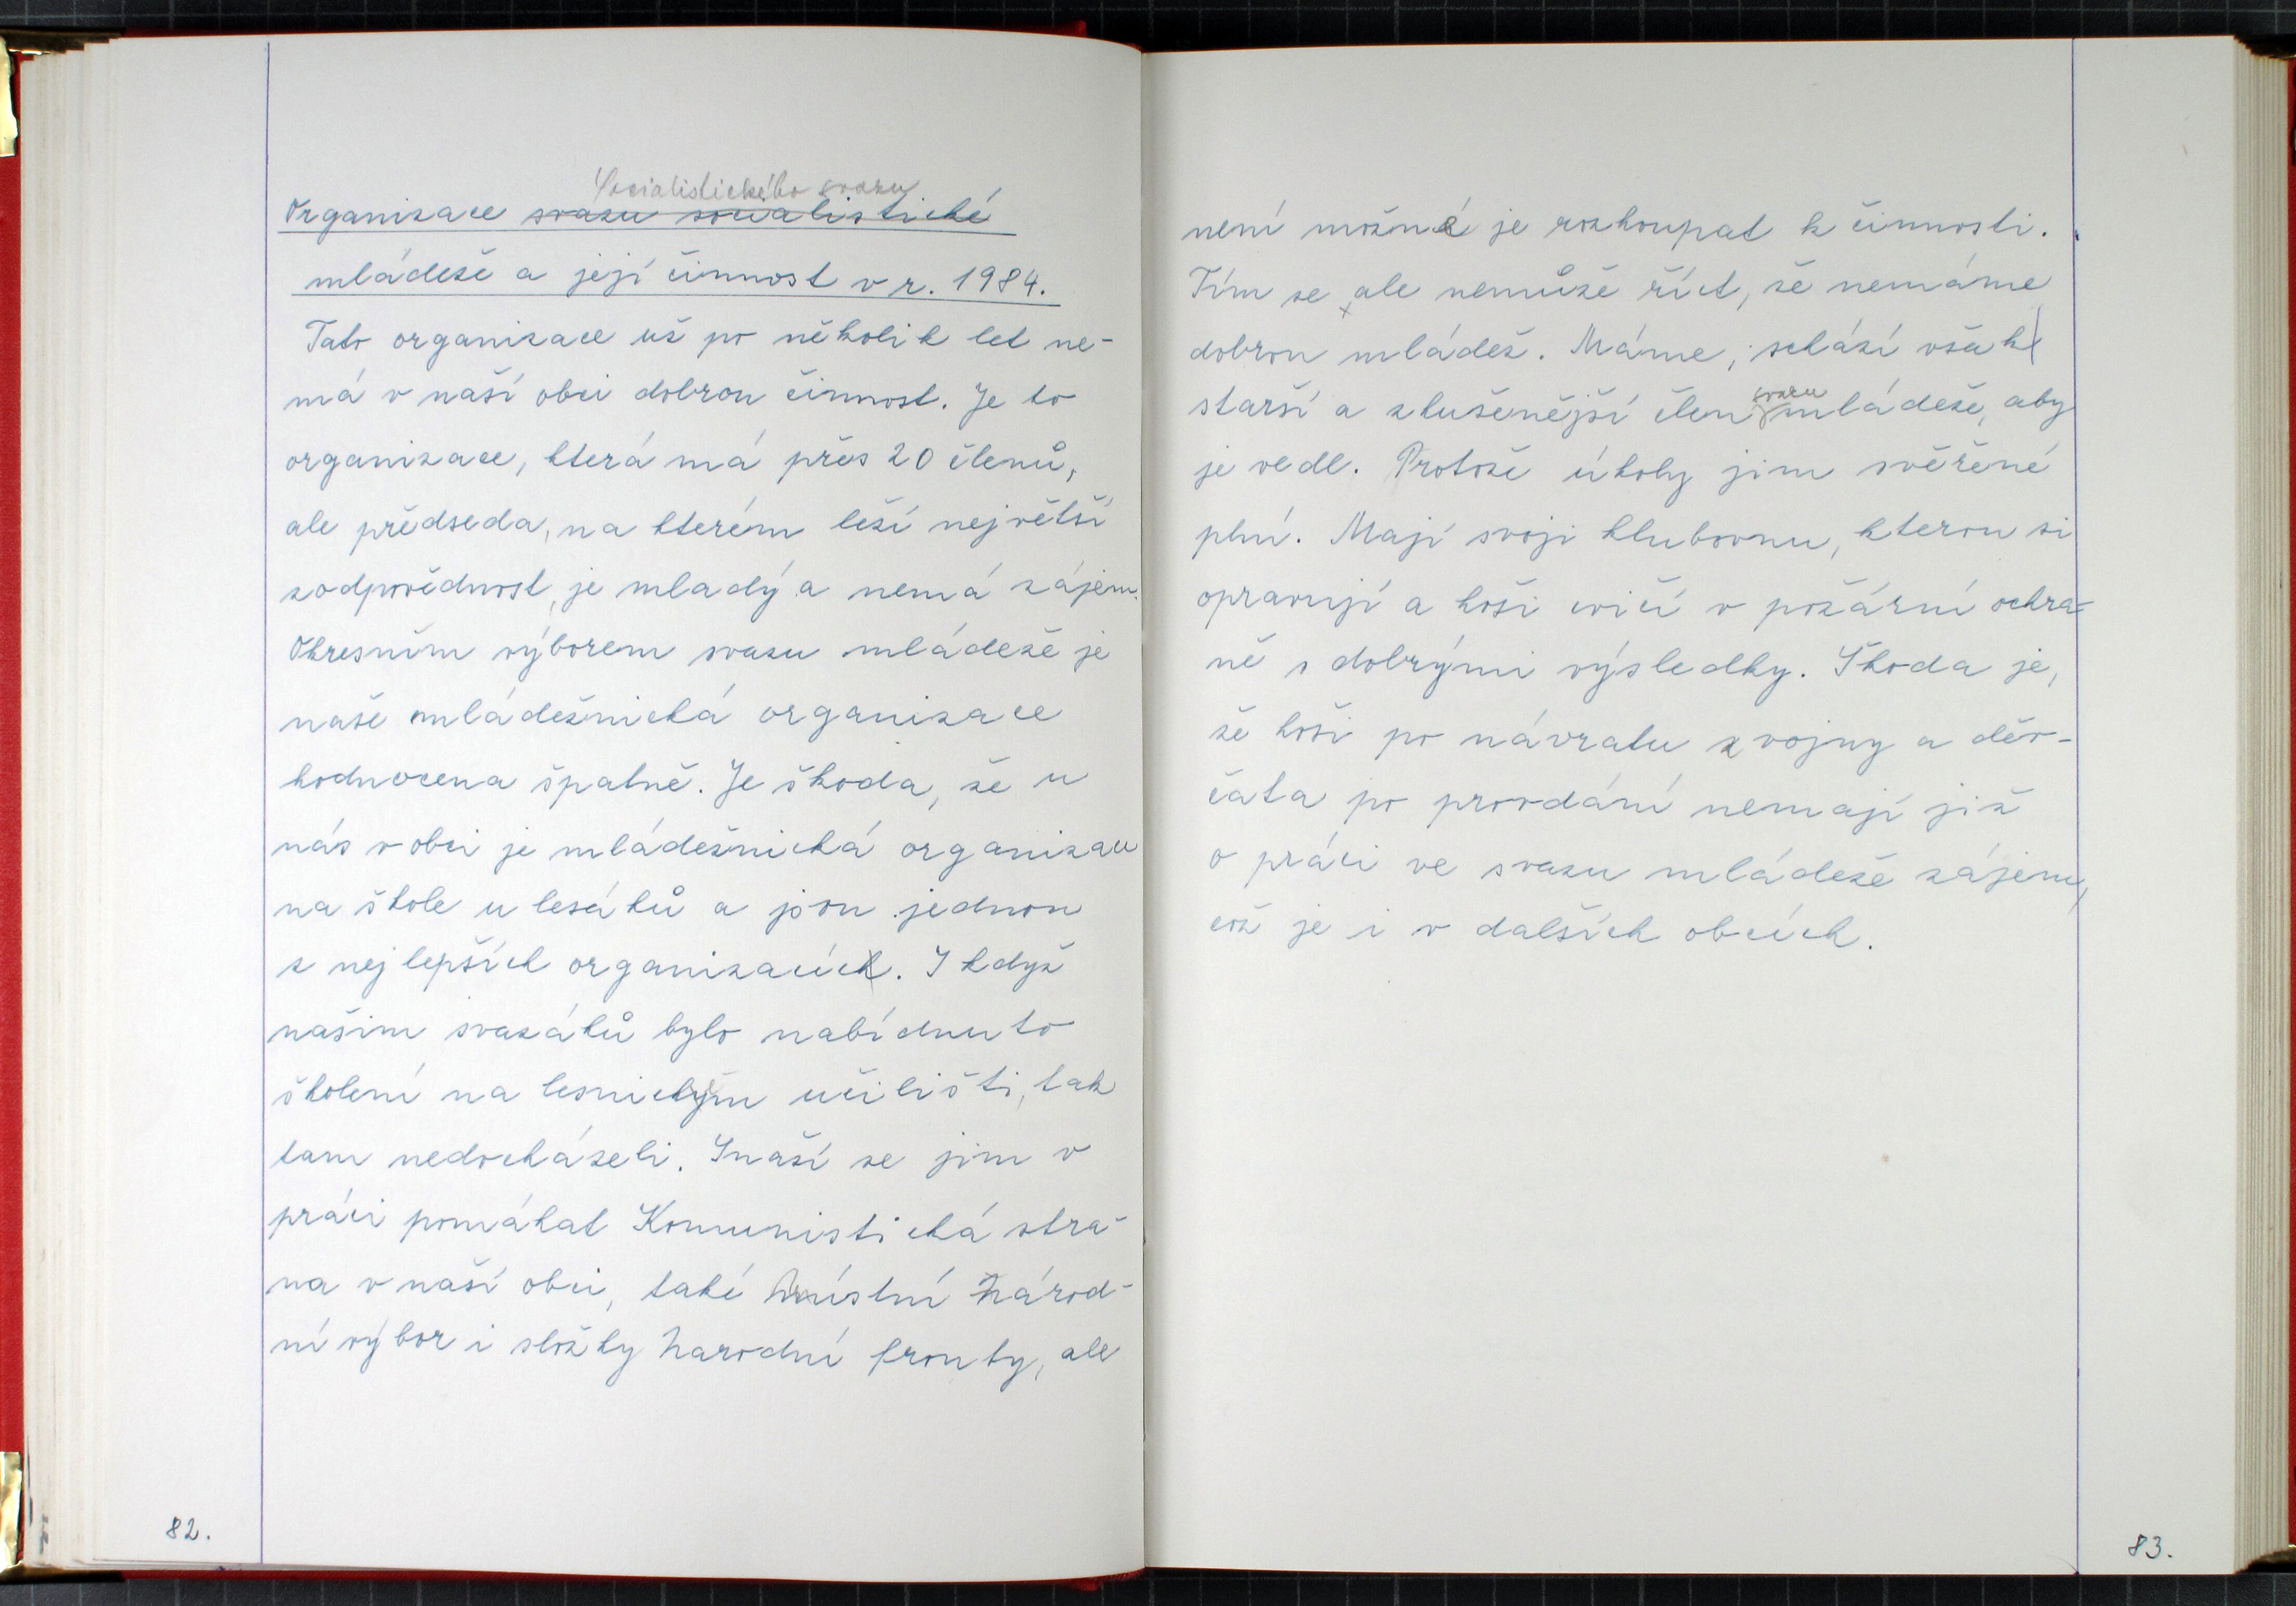 Socialistického svazu
Organizace svazu socialistické
mládeže a její činnost v r. 1984.
Tato organizace už po několik let ne-
má v naší obci dobrou činnost. Je to
organizace, která má přes 20 členů,
ale předseda, na kterém leží největší
zodpovědnost, je mladý a nemá zájem.
Okresním výborem svazu mládeže je
naše mládežnická organizace
hodnocena špatně. Je škoda, že u
nás v obci je mládežnická organizace
na škole u lesáků a jsou jednou
z nejlepších organizacích. I když
našim svazáků bylo nabídnuto
školení na lesnickým učilišti, tak
tam nedocházeli. Snaží se jim v
práci pomáhat Komunistická stra-
na v naší obci, také Místní národ-
ní výbor i složky Národní fronty, ale
82.
není možné je rozhoupat k činnosti.
Tím se ale nemůže říct, že nemáme
dobrou mládež. Máme, schází však
svazu
starší a zkušenější člen mládeže, aby
je vedl. Protože úkoly jim svěřené
plní. Mají svoji klubovnu, kterou si
opravují a hoši cvičí v požární ochra-
ně s dobrými výsledky. Škoda je,
že hoši po návratu z vojny a děv-
čata po provdání nemají již
o práci ve svazu mládeže zájem,
což je i v dalších obcích.
83.